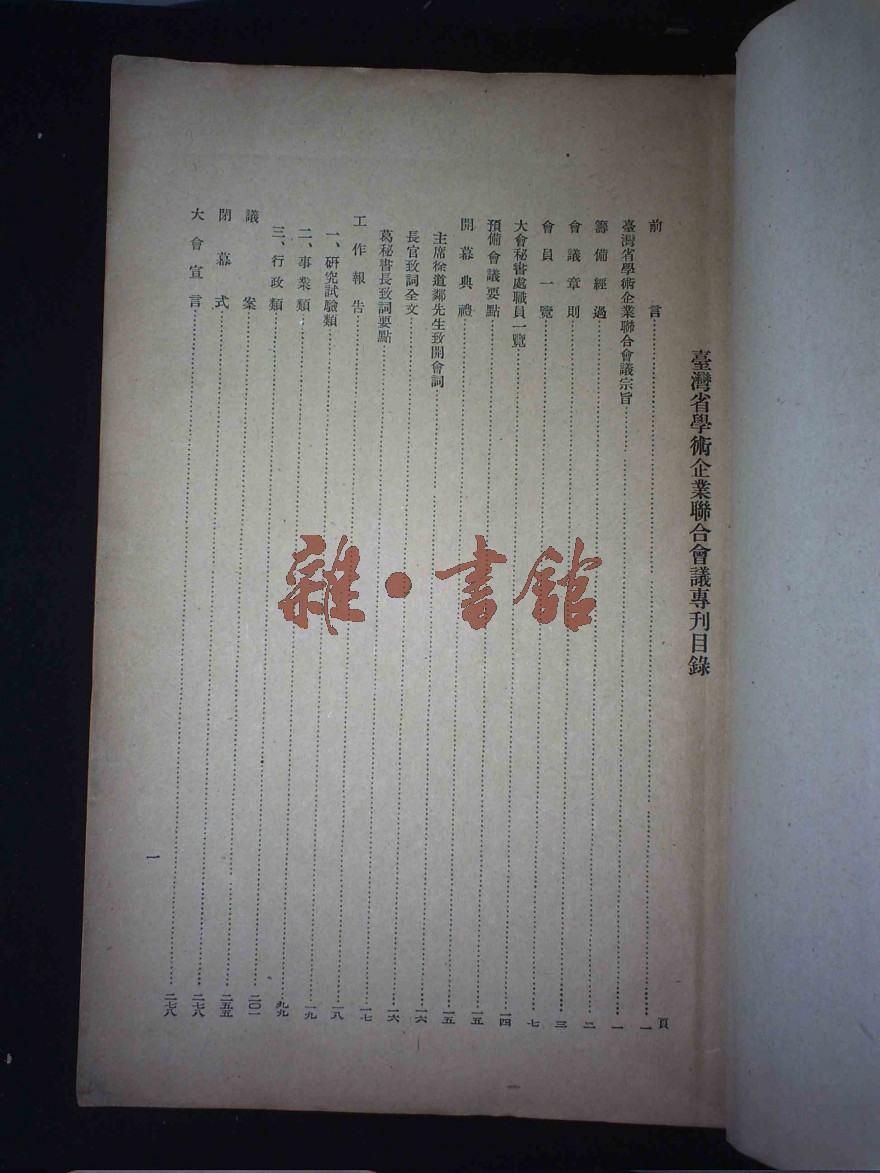 臺灣省學術企業聯合會議專刊目錄
頁
前言……一
臺灣省學術企業聯合會議宗旨……一
籌備經過……二
會議章則……三
會員一覽……七
大會秘書處職員一覽……一四
預備會議要點……一五
開幕典禮……一五
主席徐道鄰先生致開會詞……一六
長官致詞全文……一六
葛秘書長致詞要點……一七
工作報告……一八
一、研究試驗類……一九
二、事業類……九九
三、行政類……二〇一
議案……二五五
閉幕式……二七八
大會宣言……二七八
一
雜·書館